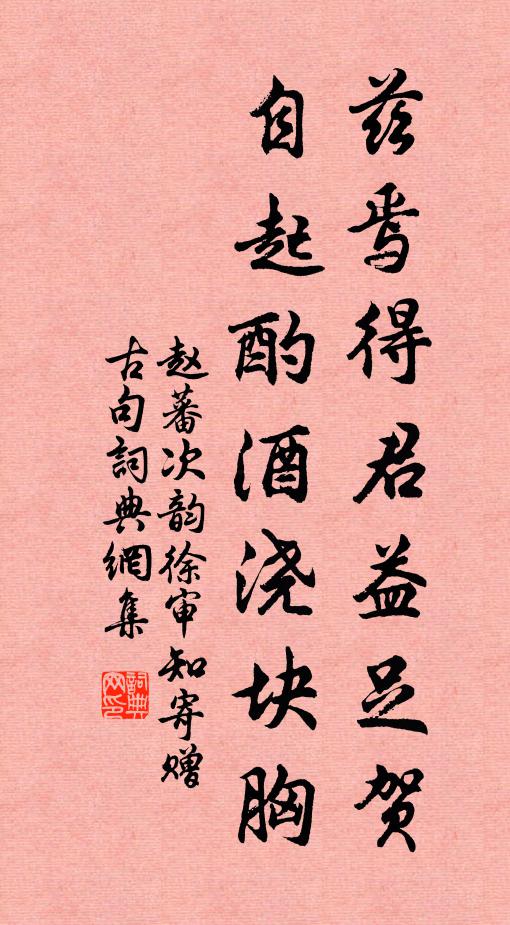 兹焉得君益足贺
自起酌酒浇块胸
赵蕃次韵徐审知寄赠
古句詞典網集
詞典
网印